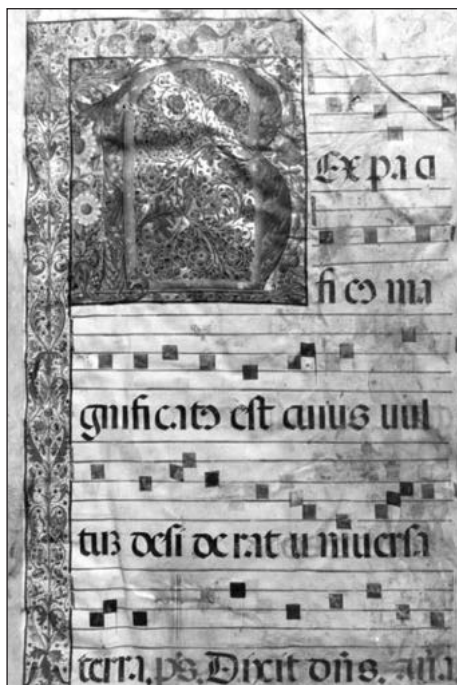 REx pa ci
fi cꝯ ma
gnificatꝯ est cuius uul
tuʒ desi de rat u niuersa
terra. ps. Dixit dn̄s. ana